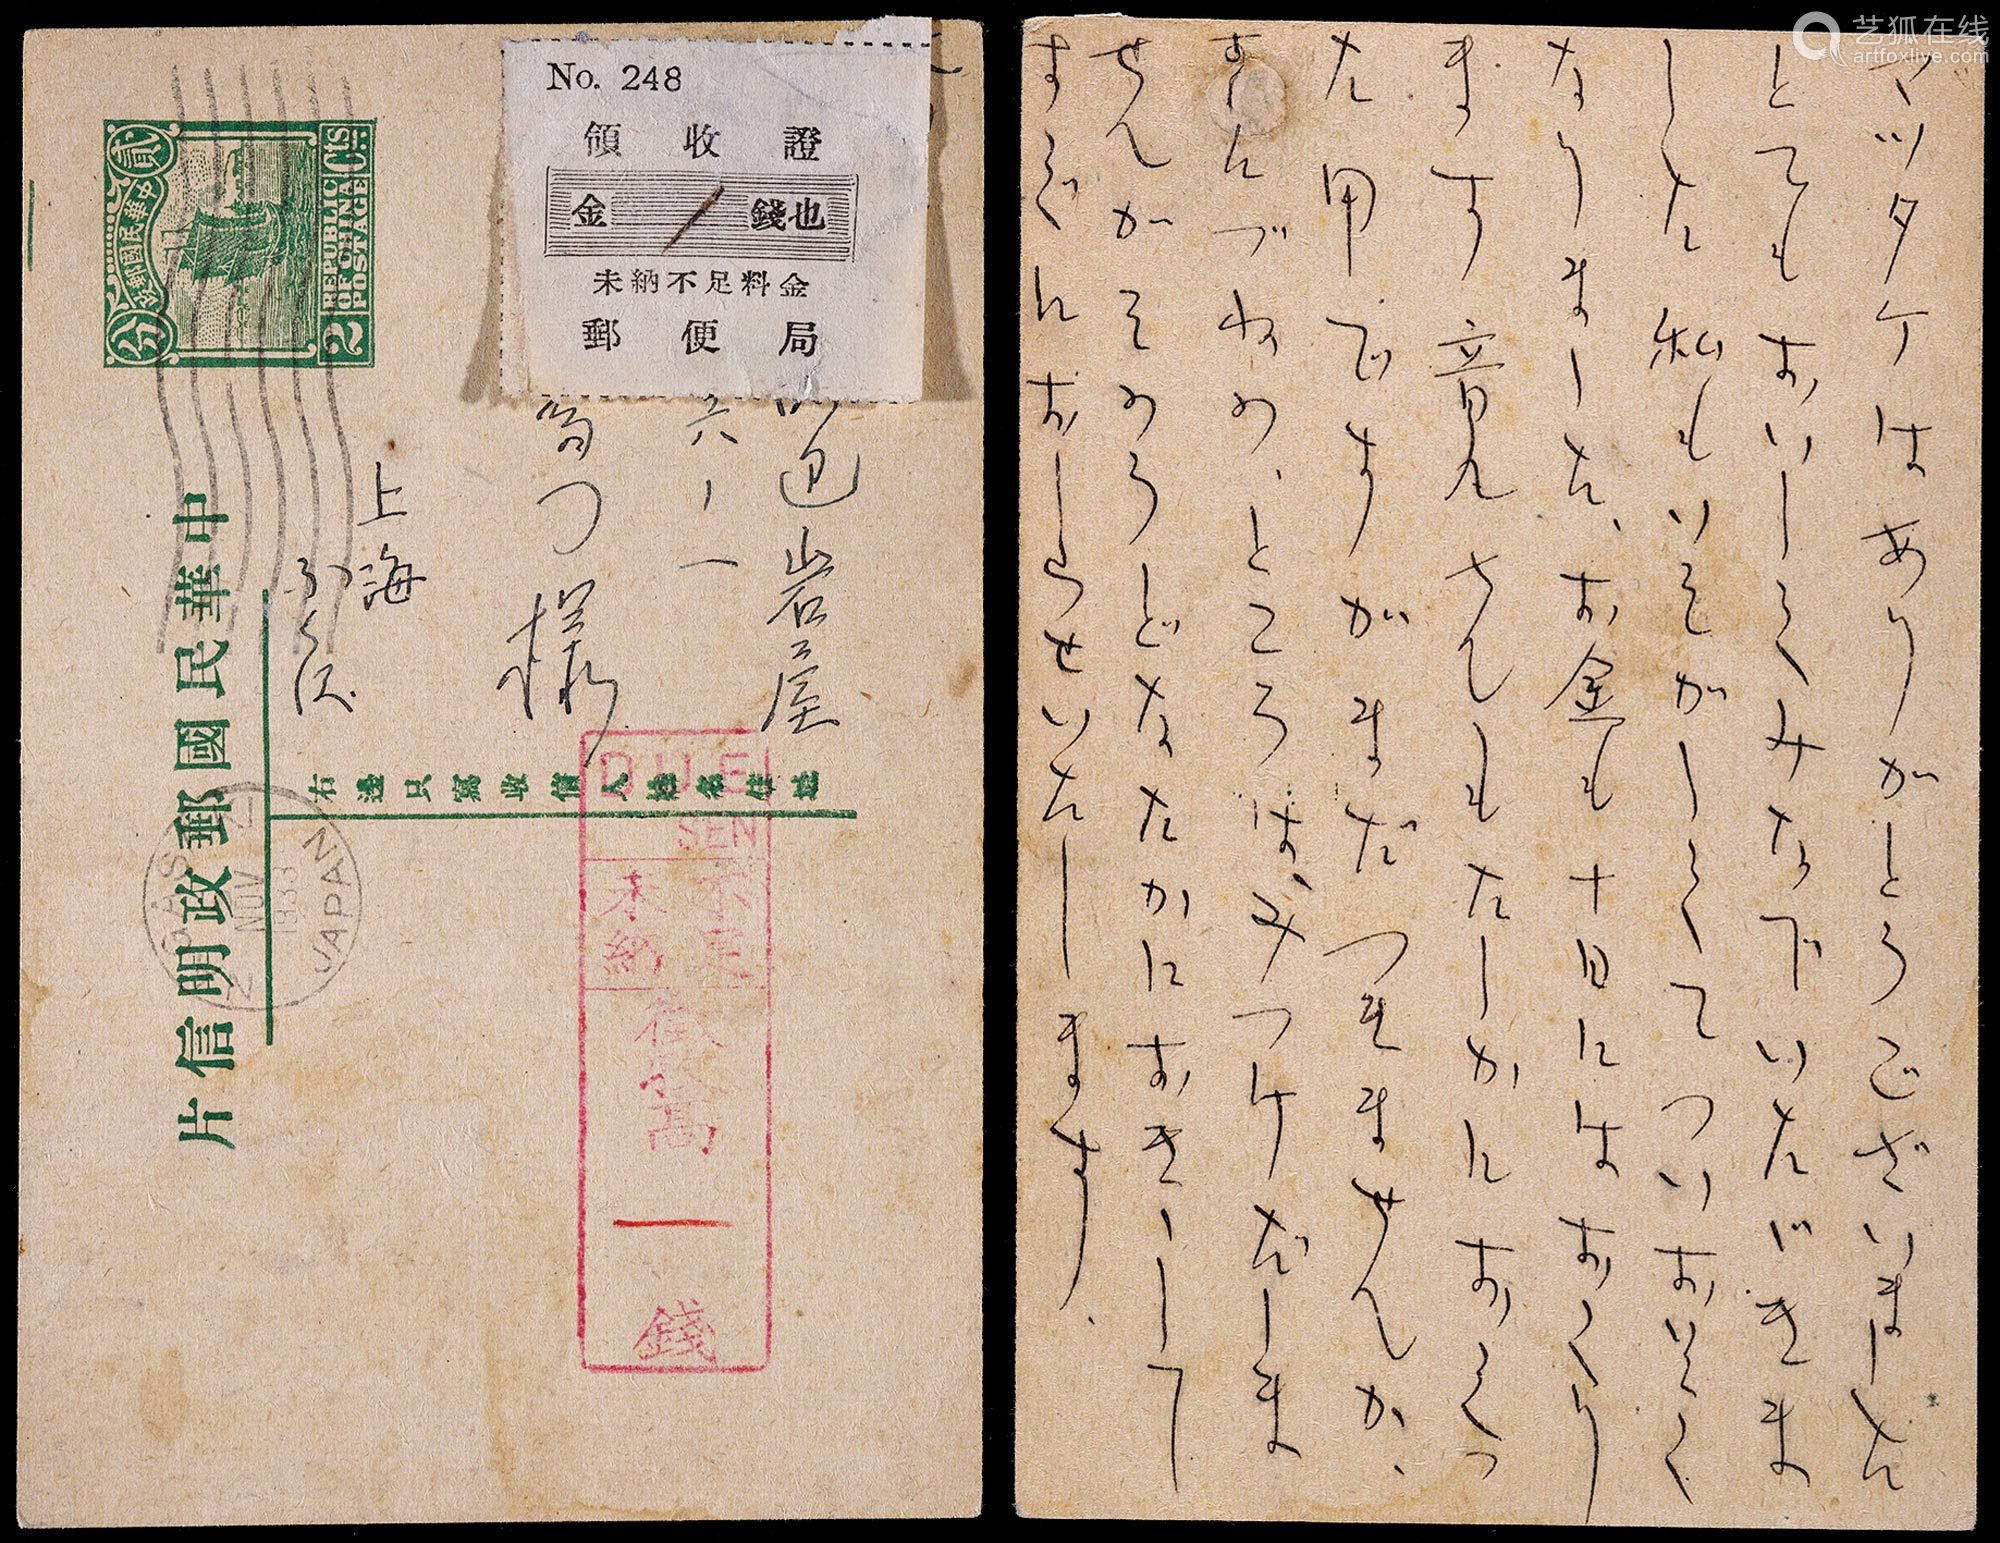 No. 248
領收證
金 / 錢也
未納不足料金
郵便局
貳
分
中華民國郵政
REPUBLIC
OF CHINA
POSTAGE
2 Cts
中華民國郵政明信片
右邊只寫收信人姓名住址
岩屋
六ノ一
様
上海
NOV
1933
JAPAN
DUE
SEN
不足
未納
一錢
マツタケはありがとうございました
とてもおいしくみなでいたゞきま
した 私もいそがしくてついおそく
なりました、お金も十日にはおくり
ます 音見さんもたしかにおくつ
た用ですがまだつきませんか、
おたづねの、ところは、みつけだしま
せんがそのうどなたかにおきゝして
すぐにおしらせいたします.
艺狐在线
artfoxlive.com